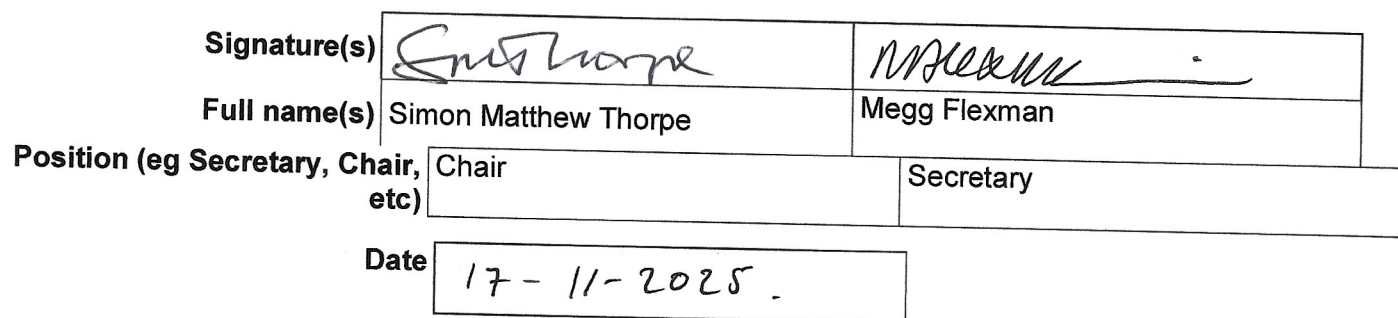 Signature(s) SMThorpe
Full name(s) Simon Matthew Thorpe Megg Flexman
Position (eg Secretary, Chair, Chair Secretary
etc)
Date 17-11-2025.